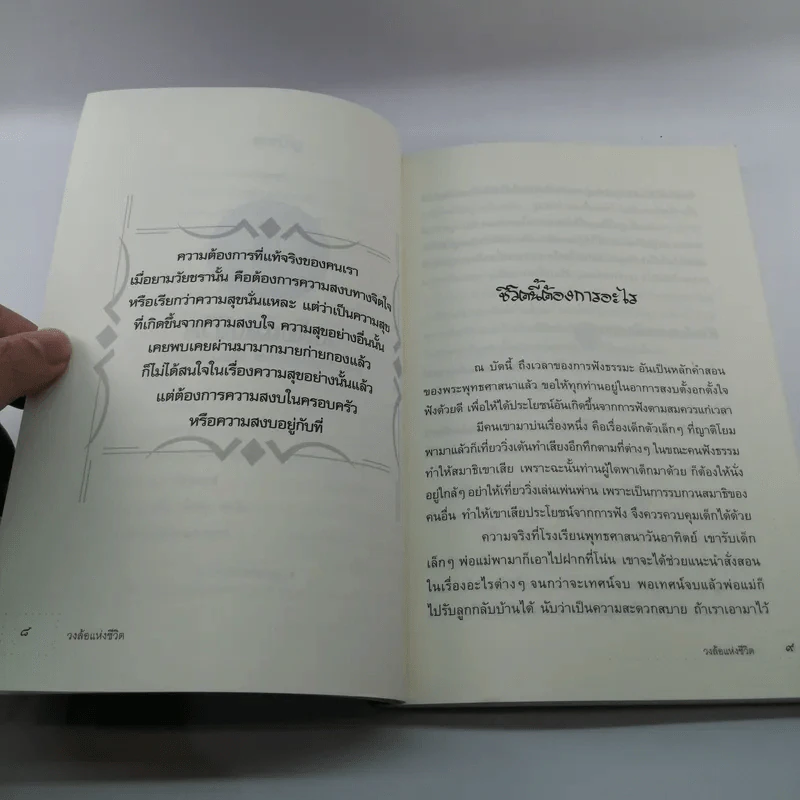 ความต้องการที่แท้จริงของคนเรา
เมื่อยามวัยชรานั้น คือต้องการความสงบทางจิตใจ
หรือเรียกว่าความสุขนั่นแหละ แต่ว่าเป็นความสุข
ที่เกิดขึ้นจากความสงบใจ ความสุขอย่างอื่นนั้น
เคยพบเคยผ่านมามากมายก่ายกองแล้ว
ก็ไม่ได้สนใจในเรื่องความสุขอย่างนั้นแล้ว
แต่ต้องการความสงบในครอบครัว
หรือความสงบอยู่กับที่
๘ วงล้อแห่งชีวิต
ชีวิตนี้ต้องการอะไร
ณ บัดนี้ ถึงเวลาของการฟังธรรมะ อันเป็นหลักคำสอน
ของพระพุทธศาสนาแล้ว ขอให้ทุกท่านอยู่ในอาการสงบตั้งอกตั้งใจ
ฟังด้วยดี เพื่อให้ได้ประโยชน์อันเกิดขึ้นจากการฟังตามสมควรแก่เวลา
มีคนเขามาบ่นเรื่องหนึ่ง คือเรื่องเด็กตัวเล็กๆ ที่ญาติโยม
พามาแล้วก็เที่ยววิ่งเต้นทำเสียงอึกทึกตามที่ต่างๆ ในขณะคนฟังธรรม
ทำให้สมาธิเขาเสีย เพราะฉะนั้นท่านผู้ใดพาเด็กมาด้วย ก็ต้องให้นั่ง
อยู่ใกล้ๆ อย่าให้เที่ยววิ่งเล่นเพ่นพ่าน เพราะเป็นการรบกวนสมาธิของ
คนอื่น ทำให้เขาเสียประโยชน์จากการฟัง จึงควรควบคุมเด็กไว้ด้วย
ความจริงที่โรงเรียนพุทธศาสนาวันอาทิตย์ เขารับเด็ก
เล็กๆ พ่อแม่พามาก็เอาไปฝากที่โน่น เขาจะได้ช่วยแนะนำสั่งสอน
ในเรื่องอะไรต่างๆ จนกว่าจะเทศน์จบ พอเทศน์จบแล้วพ่อแม่ก็
ไปรับลูกกลับบ้านได้ นับว่าเป็นความสะดวกสบาย ถ้าเราเอามาไว้
วงล้อแห่งชีวิต ๙